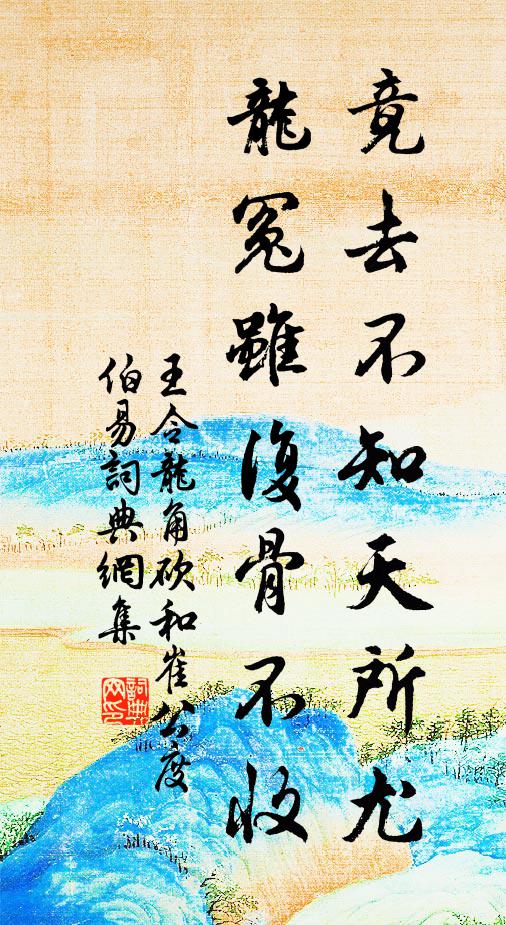 竟去不知天所尤
龍冤雖復骨不收
王令龍角砍和崔公度
伯易詞典網集
詞典網印